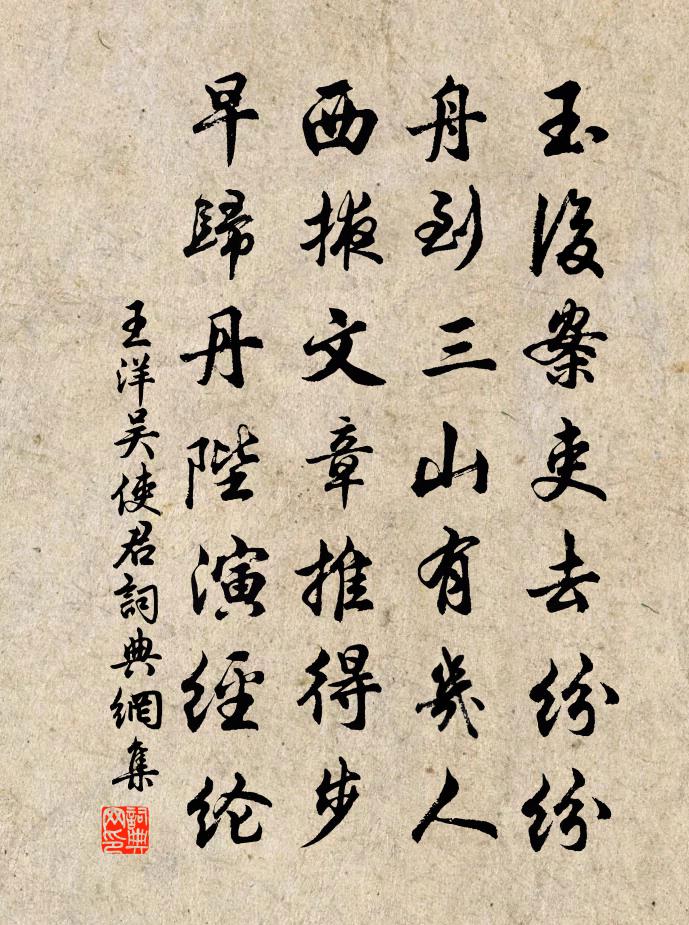 玉後案吏去紛紛
舟到三山有幾人
西掖文章推得步
早歸丹陛演經綸
王洋吳使君詞典網集
詞典網印